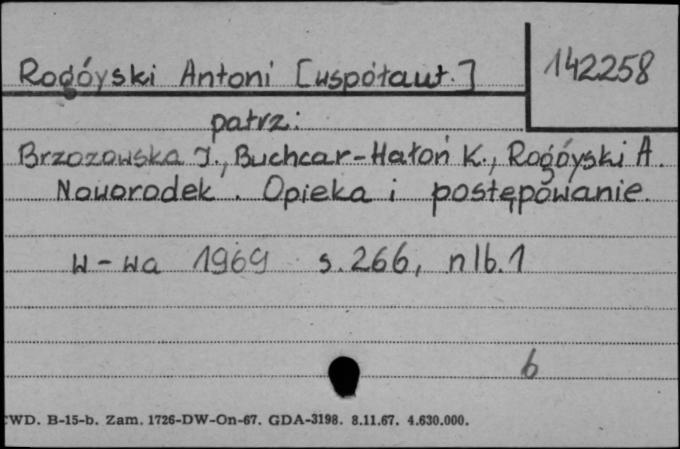 Rogóyski Antoni [współaut.]
142258
patrz:
Brzozowska J., Buchcar-Hałoń K., Rogóyski A.
Noworodek. Opieka i postępowanie.
W-wa 1969 s.266, nlb.1
b
CWD. B-15-b. Zam. 1726-DW-On-67. GDA-3198. 8.11.67. 4.630.000.